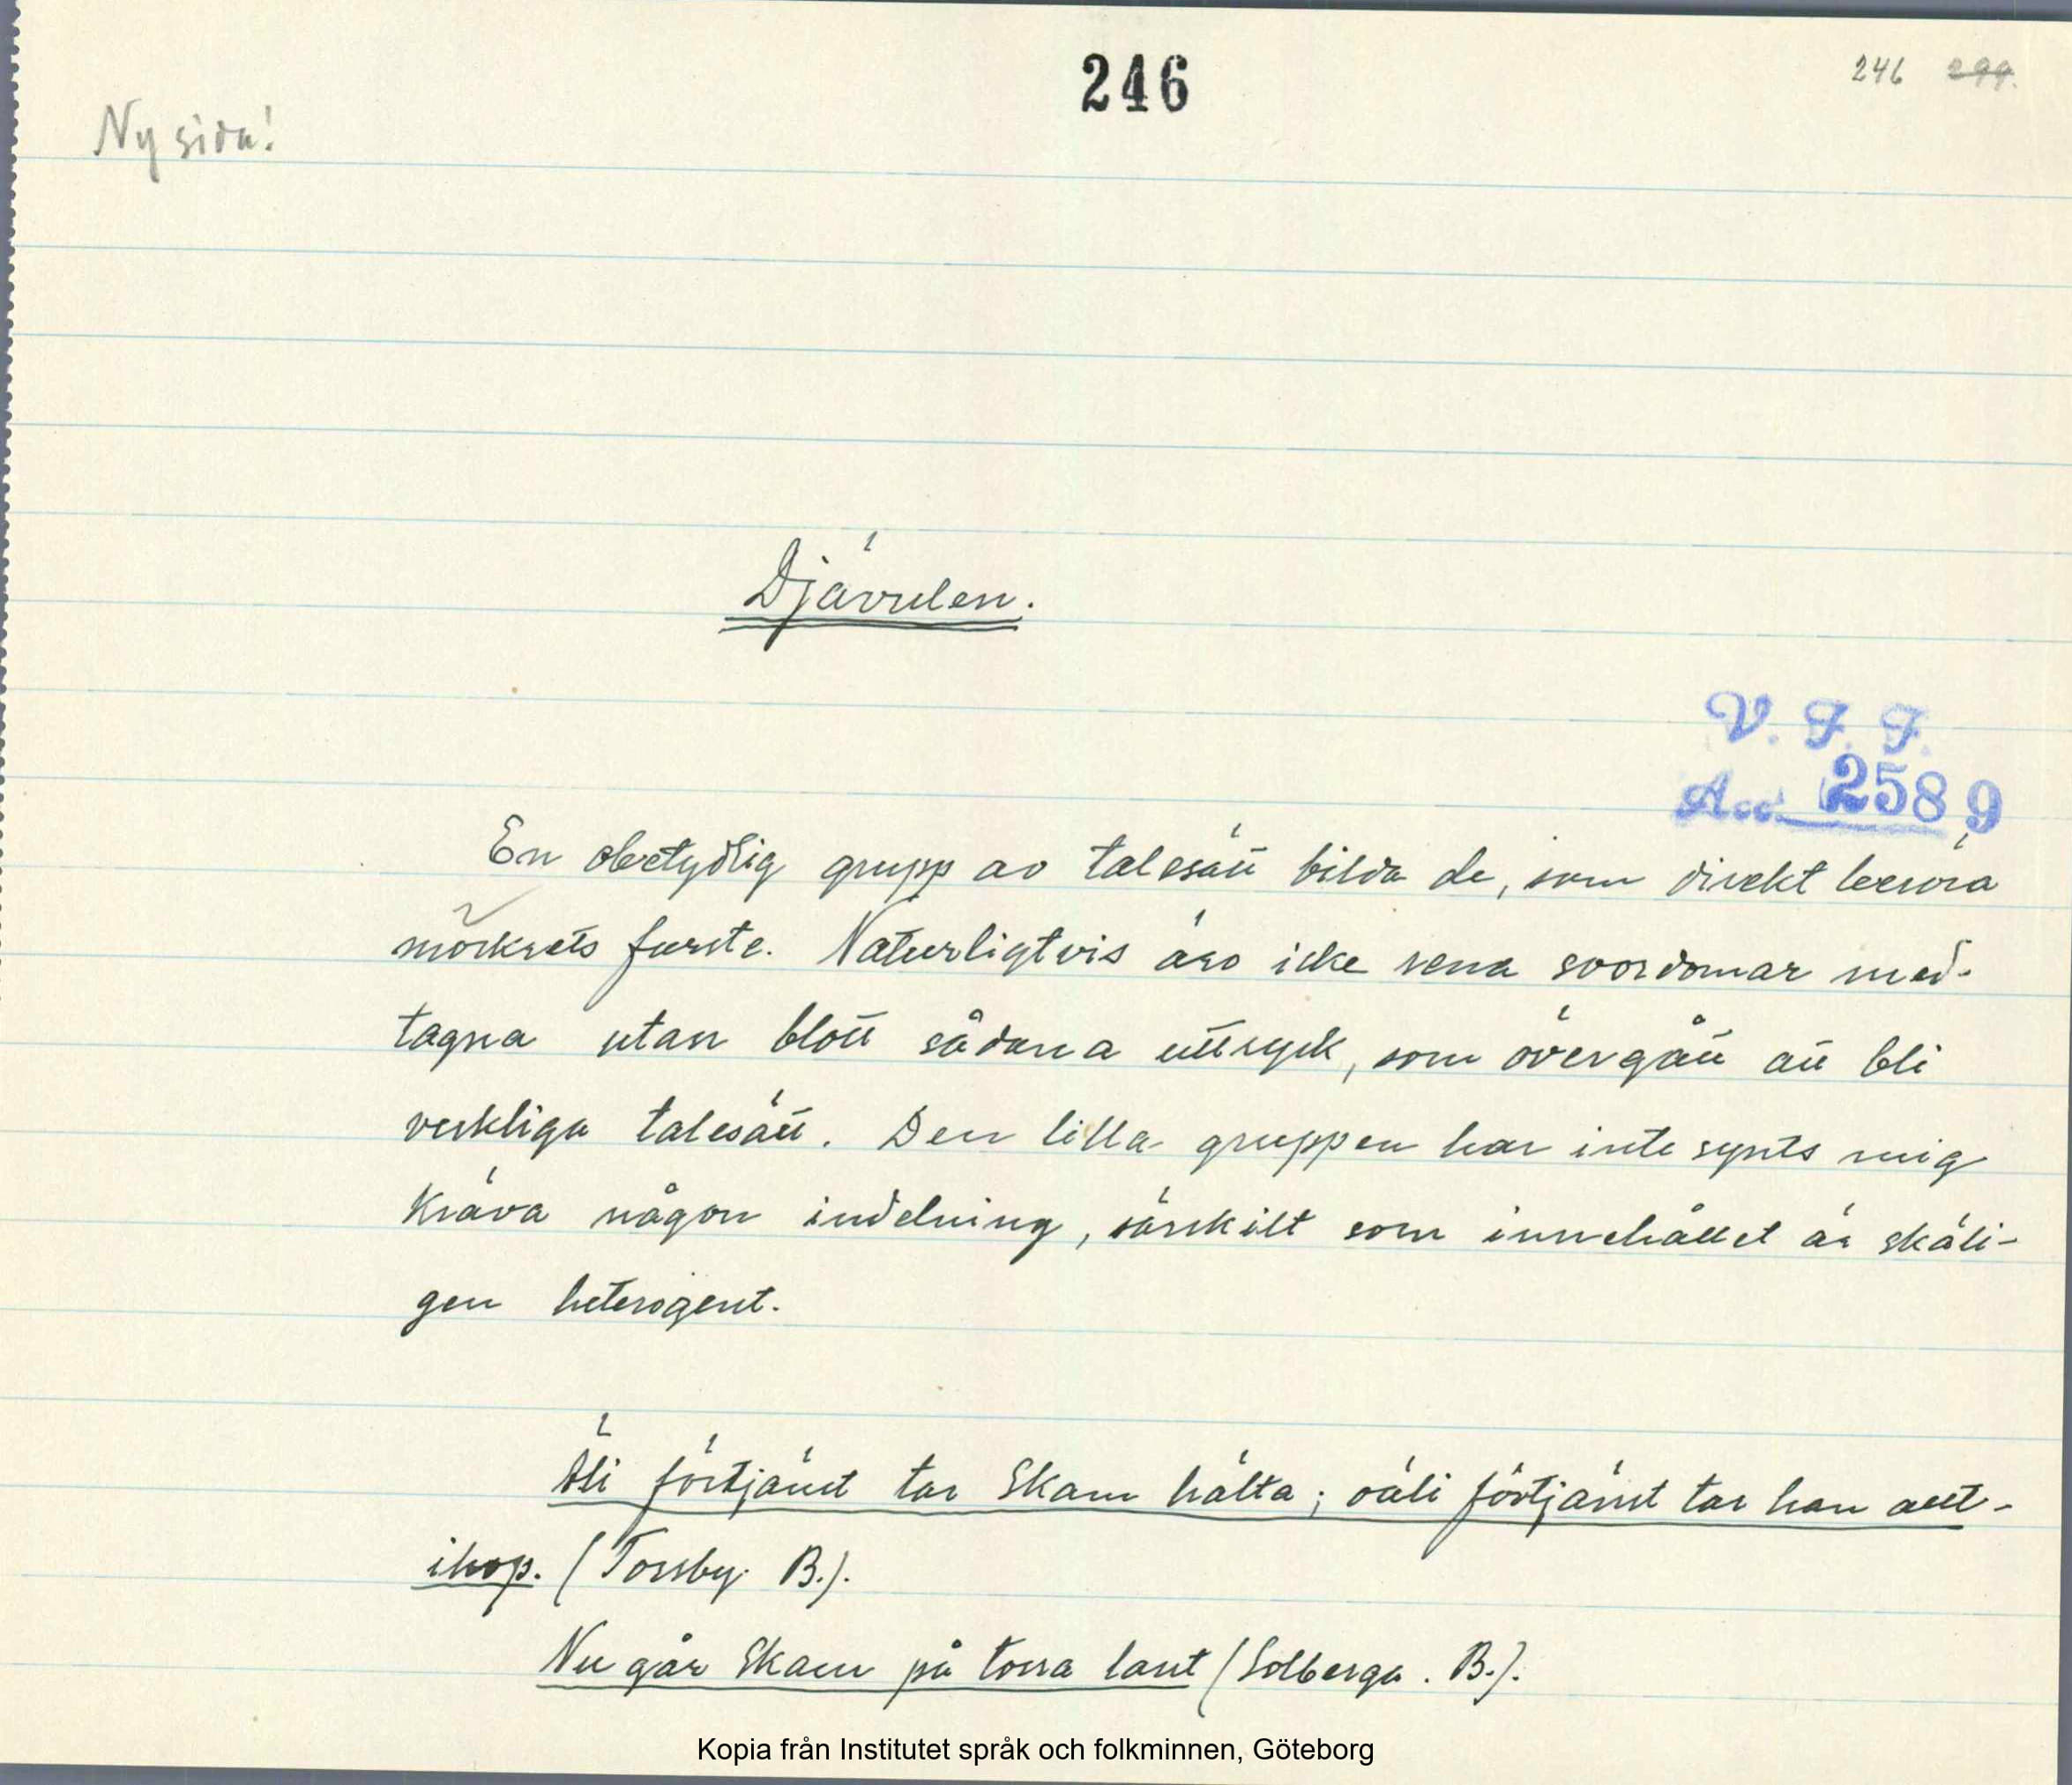 246
246 299.
Ny sida!
Djävulen.
V. F. F.
Acc. 2589
En obetydlig grupp av talesätt bilda de, som direkt beröra
mörkrets furste. Naturligtvis äro icke rena svordomar med-
tagna utan blott sådana uttryck, som övergått att bli
verkliga talesätt. Den lilla gruppen har inte synts mig
kräva någon indelning, särskilt som innehållet är skäli-
gen heterogent.
Äli förtjänst tar Skam hälta; oäli förtjänst tar han allt-
ihop. (Torsby. B.).
Nu går Skam på torra lant (Solberga. B.).
Kopia från Institutet språk och folkminnen, Göteborg